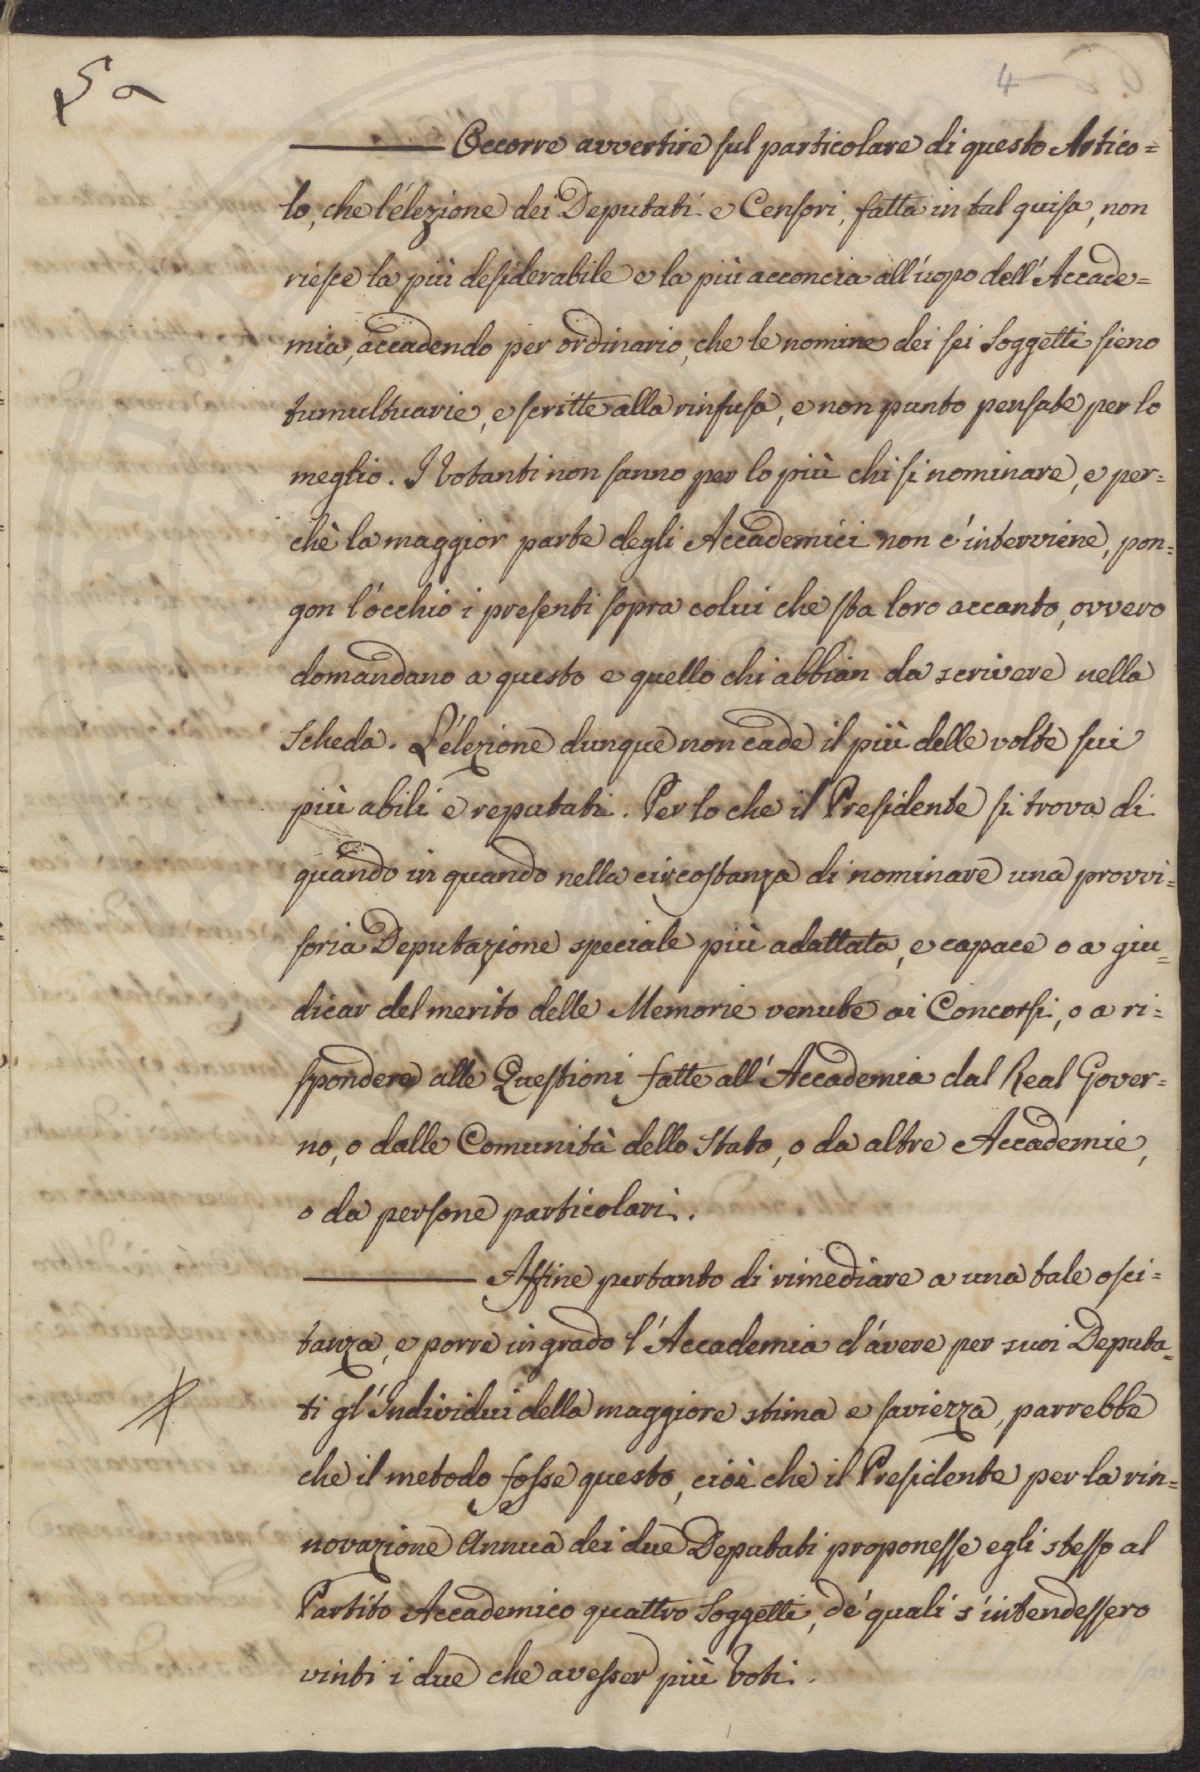 5a
4
Occorre avvertire sul particolare di questo Artico=
lo, che l'élezione dei Deputati e Censori, fatta in tal guisa, non
riesce la più desiderabile e la più acconcia all'uopo dell'Accade=
mia, accadendo per ordinario, che le nomine dei sei Soggetti sieno
tumultuarie, e scritte alla rinfusa, e non punto pensate per lo
meglio. I Votanti non sanno per lo più chi si nominare, e per=
chè la maggior parte degli Accademici non c'interviene, pon=
gon l'occhio i presenti sopra colui che sta loro accanto, ovvero
domandano a questo e quello chi abbian da scrivere nella
Scheda. L'élezione dunque non cade il più delle volte sui
più abili e reputati. Per lo che il Presidente si trova di
quando in quando nella circostanza di nominare una provvi=
soria Deputazione speciale più adattata, e capace o a giu=
dicar del merito delle Memorie venute ai Concorsi, o a ri=
spondere alle Questioni fatte all'Accademia dal Real Gover=
no, o dalle Comunità dello Stato, o da altre Accademie,
o da persone particolari.
Affine pertanto di rimediare a una tale osci=
tanza, e porre in grado l'Accademia d'avere per suoi Deputa=
ti gl'Individui della maggiore stima e saviezza, parrebbe
che il metodo fosse questo, cioè che il Presidente per la rin=
novazione Annua dei due Deputati proponesse egli stesso al
Partito Accademico quattro Soggetti, de' quali s'intendessero
vinti i due che avesser più Voti.